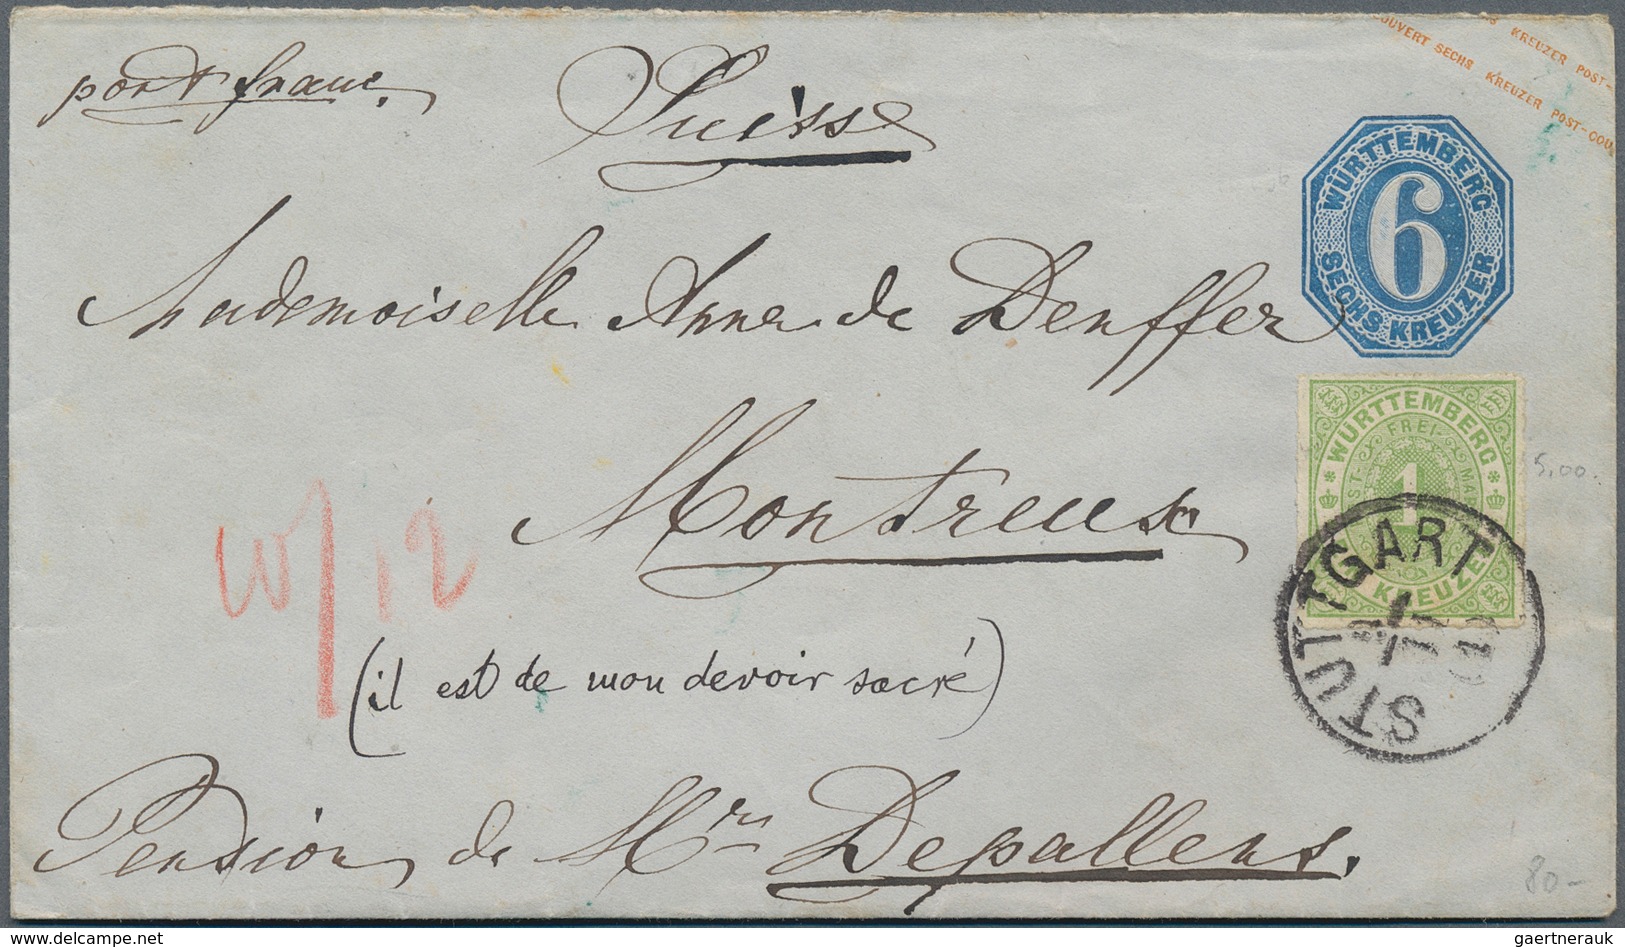 port franc.
Suisse
OUVERT SECHS KREUZER POST-COU
KREUZER POST-
WÜRTTEMBERG
6
SECHS KREUZER
Mademoiselle Anna de Denffer
WÜRTTEMBERG
FREI-
1
KREUZER
5,00.
Montreux
STUTTGART
w/12
(il est de mon devoir sacré)
Pension de Mrs Depallens.
80-
www.delcampe.net
gaertnerauk